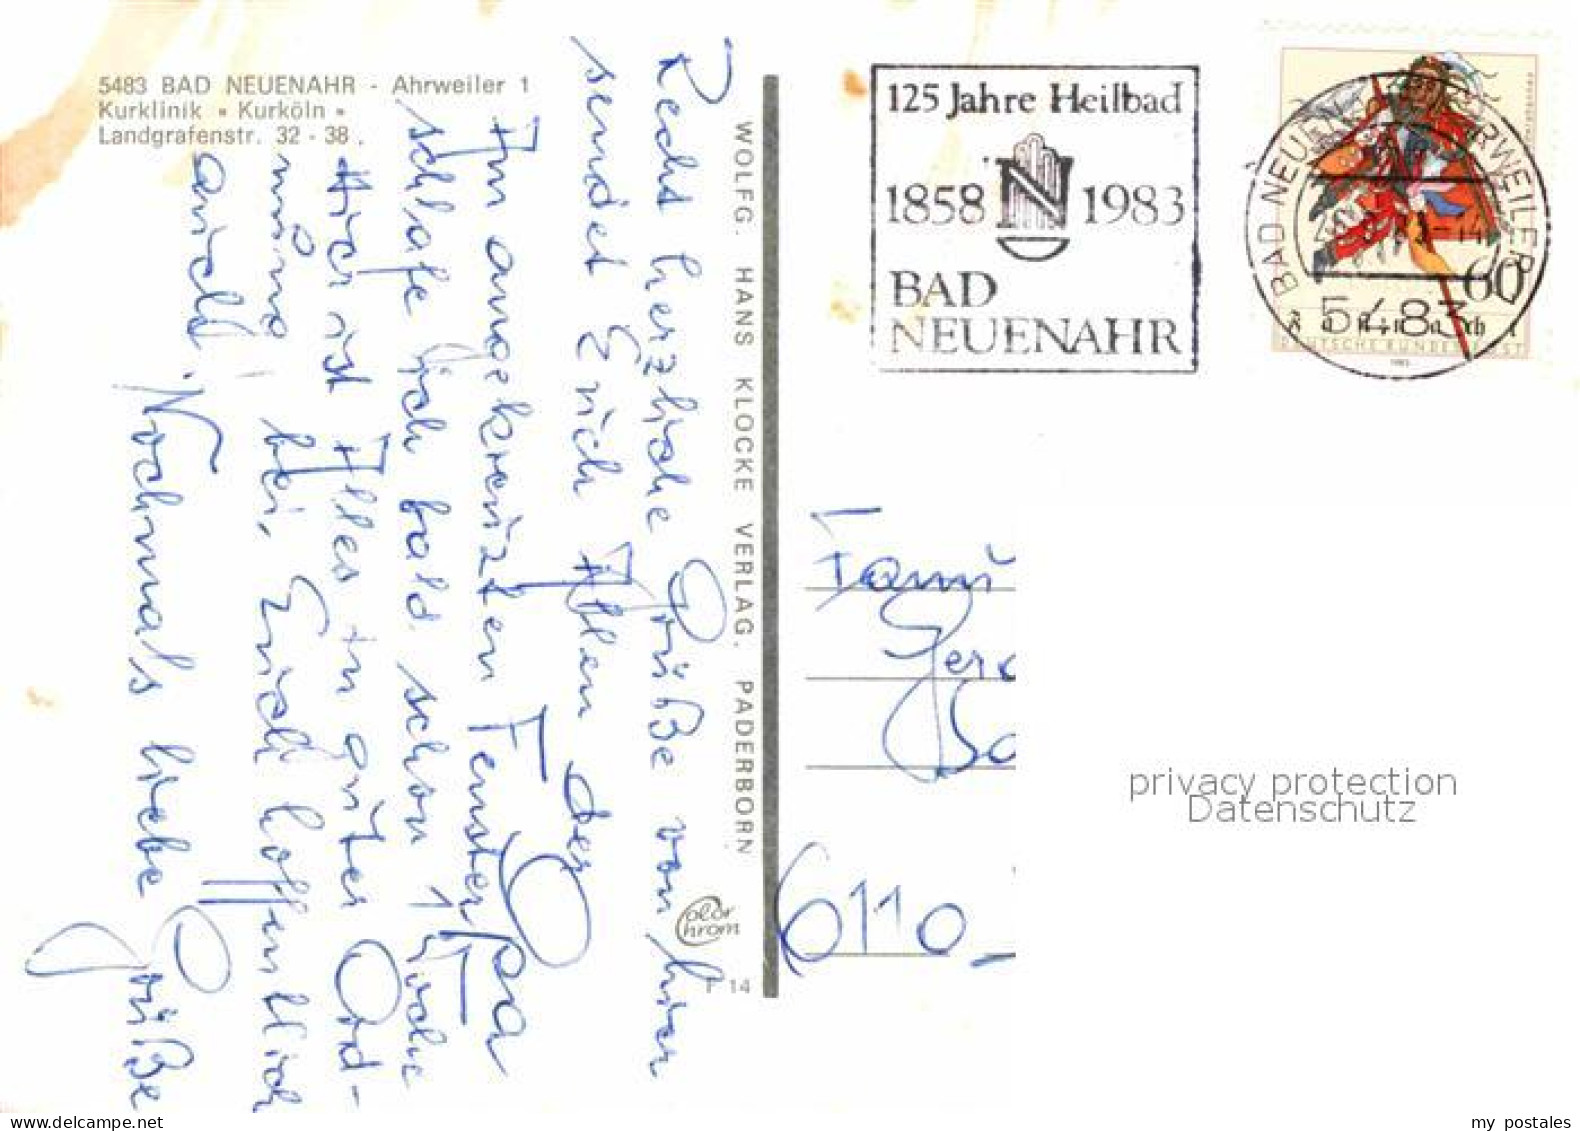 5483 BAD NEUENAHR - Ahrweiler 1
Kurklinik "Kurköln"
Landgrafenstr. 32 - 38.
Recht herzliche Grüße von hier
sendet Euch Allen der Opa
Im angekreuzten Fenster
schlafe ich bald schon 1 Woche
Hier ist Alles in guter Ord-
nung bei Euch hoffentlich
auch!
Nochmals liebe Grüße
WOLFG. HANS KLOCKE VERLAG. PADERBORN
Color
Chrom
F 14
125 Jahre Heilbad
1858 N 1983
BAD
NEUENAHR
BAD NEUENAHR-AHRWEILER
5483
60
Fastnacht
DEUTSCHE BUNDESPOST
1983
Fami
Gere
6110
privacy protection
Datenschutz
my postales